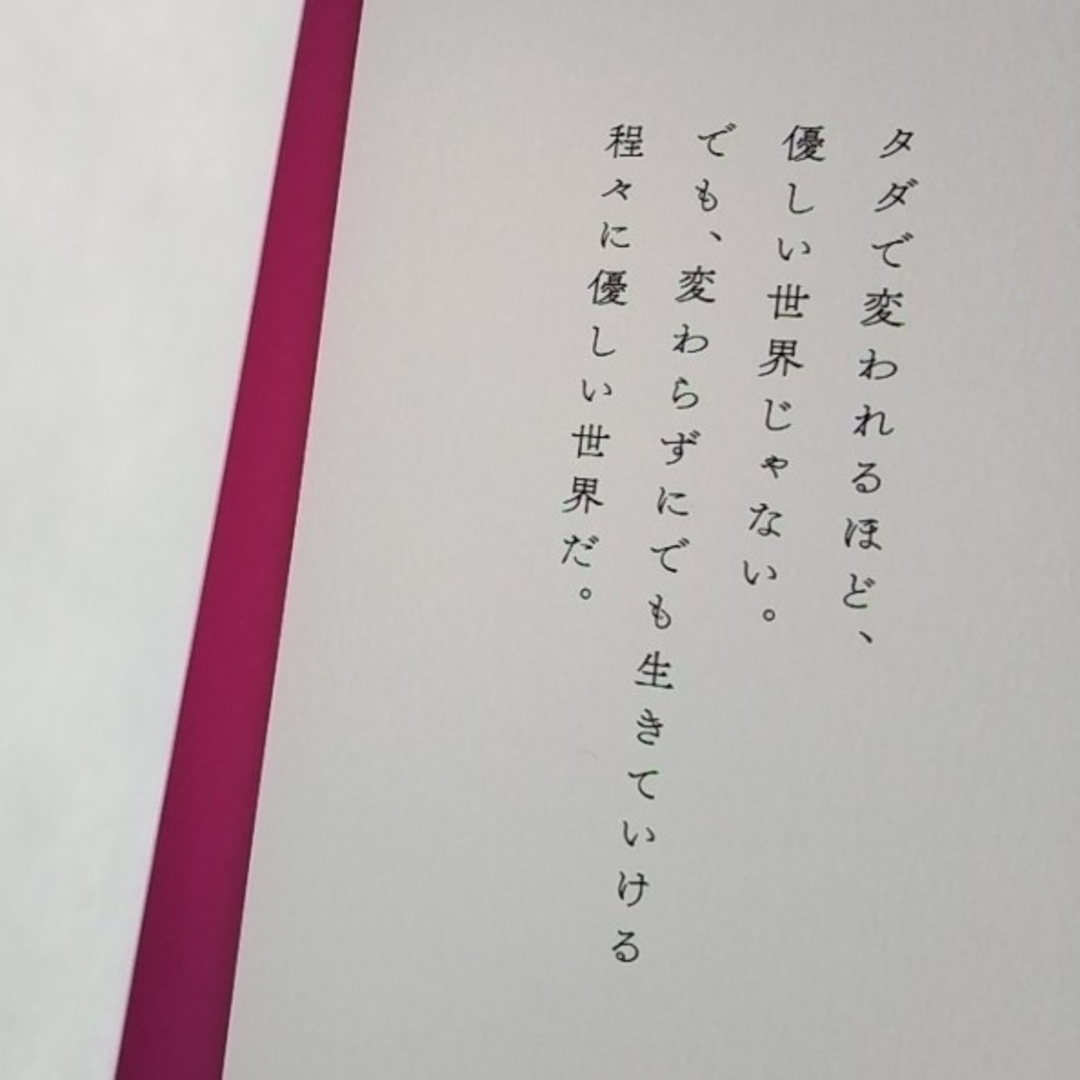 タダで変われるほど、
優しい世界じゃない。
でも、変わらずにでも生きていける
程々に優しい世界だ。